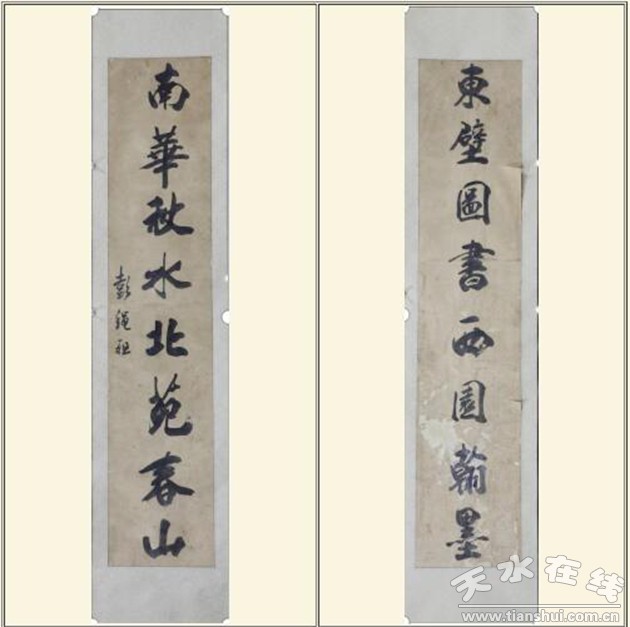 東壁圖書西園翰墨
南華秋水北苑春山
彭繩祖
天水在线
www.tianshui.com.cn